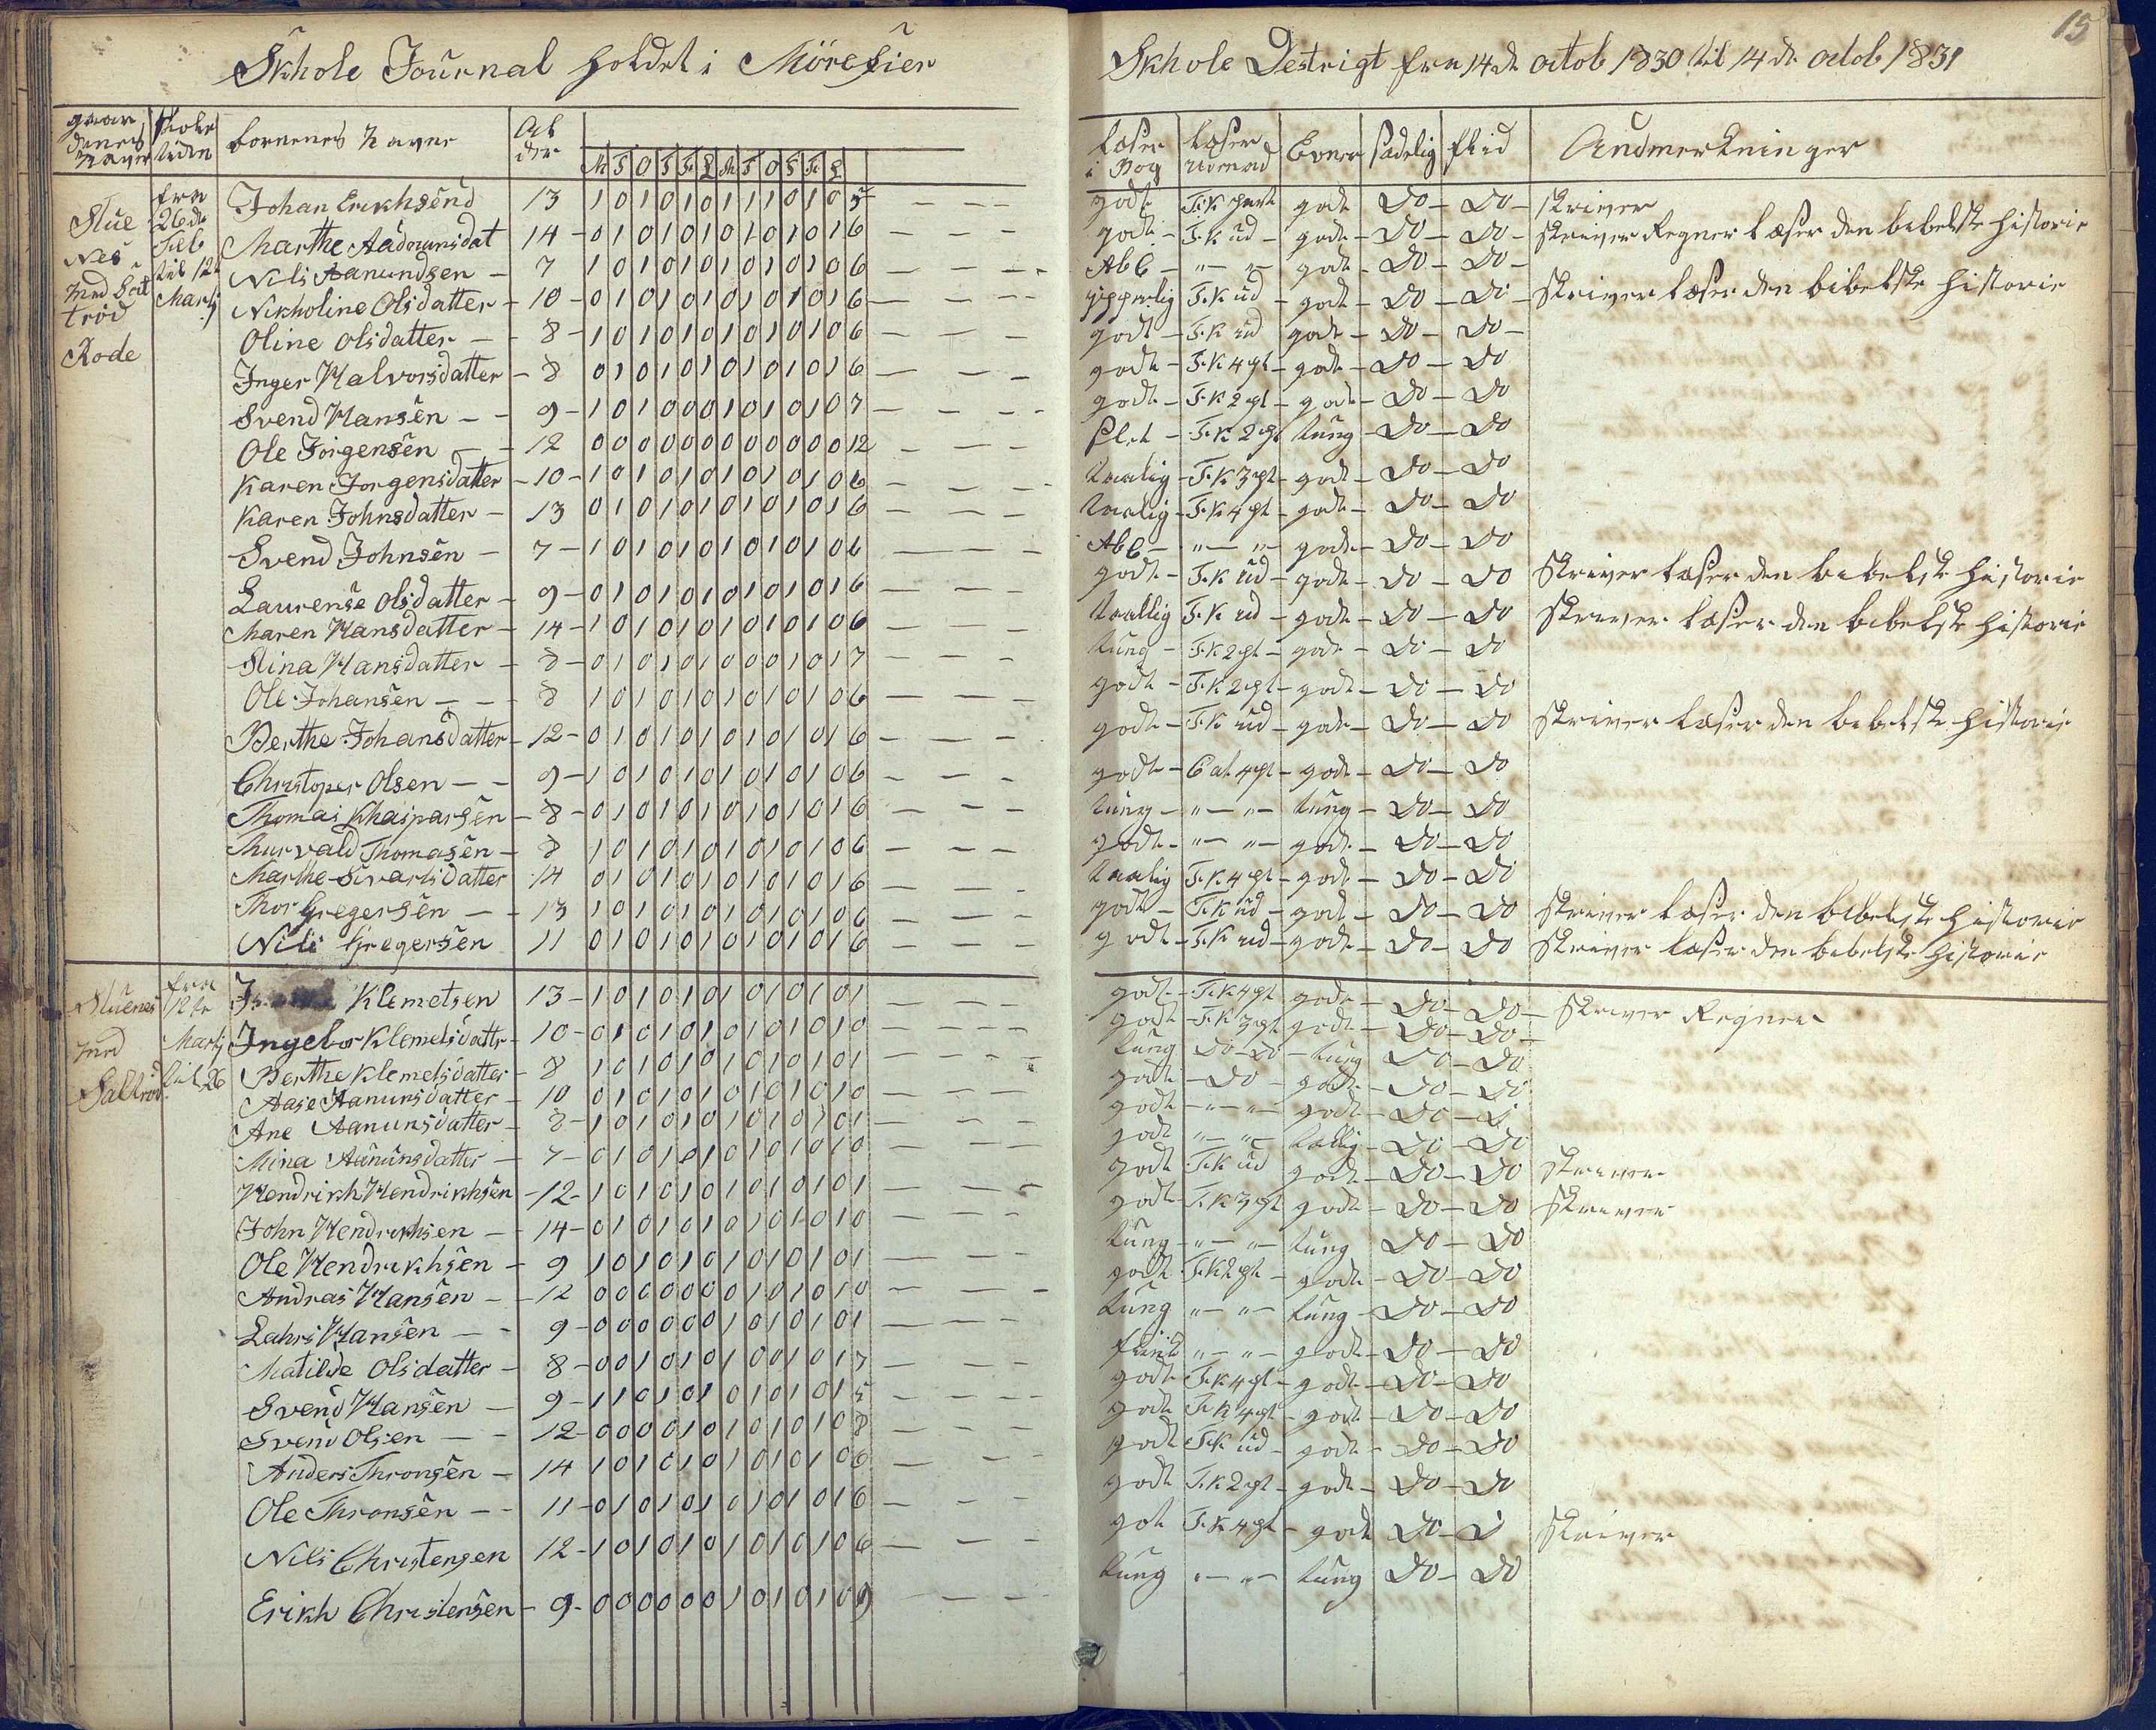 15
Skhole Journal holdet i Mörefier Skhole Destrigt fra 14de octob 1830 til 14de octob 1831
gaardenes navn skole tiden börnenes navne Alder M T O T F L M T O T F L læser i Bog læser udvendt Evner sædelig flid Andmerkninger
Stue Nes fra 26de Feb til 12te Martj
Rode
Johan Erikhsend 13 1 0 1 0 1 0 1 1 1 0 1 0 5 godt godt Do Do skriver
Marthe Aadnunsdat 14 0 1 0 1 0 1 0 1 0 1 0 1 6 godt F.K ud godt Do Do skriver Regner læser den bibelske historie
Nils Aanundsen 7 1 0 1 0 1 0 1 0 1 0 1 0 6 Abc " " godt Do Do
Nikholine Olsdatter 10 0 1 0 1 0 1 0 1 0 1 0 1 6 ypperlig F.K ud godt Do Do skriver læser den bibelske historie
Oline Olsdatter 8 1 0 1 0 1 0 1 0 1 0 1 0 6 godt F.K ud godt Do Do
Inger Halvorsdatter 8 0 1 0 1 0 1 0 1 0 1 0 1 6 godt F.K 4 pt godt Do Do
Svend Hansen 9 1 0 1 0 0 0 1 0 1 0 1 0 7 godt F.K 2 pt godt Do Do
Ole Jörgensen 12 0 0 0 0 0 0 0 0 0 0 0 0 12 F.K 2 pt tung Do Do
Karen Jorgensdatter 10 1 0 1 0 1 0 1 0 1 0 1 0 6 taalig F.K 3 pt godt Do Do
Karen Johnsdatter 13 0 1 0 1 0 1 0 1 0 1 0 1 6 taalig F.K 4 pt godt Do Do
Svend Johnsen 7 1 0 1 0 1 0 1 0 1 0 1 0 6 Abc " " godt Do Do
Laurense Olsdatter 9 0 1 0 1 0 1 0 1 0 1 0 1 6 godt F.K ud godt Do Do skriver læser den bibelske historie
Maren Hansdatter 14 1 0 1 0 1 0 1 0 1 0 1 0 6 taallig F.K ud godt Do Do skriver læser den bibelske historie
Stina Hansdatter 8 0 1 0 1 0 1 0 0 0 1 0 1 7 tung F.K 2 pt godt Do Do
Ole Johansen 8 1 0 1 0 1 0 1 0 1 0 1 0 6 godt F.K 2 pt godt Do Do
Berthe Johansdatter 12 0 1 0 1 0 1 0 1 0 1 0 1 6 godt F.K ud godt Do Do skriver læser den bibelske historie
Christoper Olsen 9 1 0 1 0 1 0 1 0 1 0 1 0 6 godt Cat 4 pt godt Do Do
Thomas Khasparsen 8 0 1 0 1 0 1 0 1 0 1 0 1 6 tung " " tung Do Do
Thurvald Thomasen 8 1 0 1 0 1 0 1 0 1 0 1 0 6 godt " " godt Do Do
Marthe Sivartsdatter 14 0 1 0 1 0 1 0 1 0 1 0 1 6 taalig F.K 4 pt godt Do Do
Thor Gregersen 13 1 0 1 0 1 0 1 0 1 0 1 0 6 godt F.K ud godt Do Do skriver læser den bibelske historie
Nils Gregersen 11 0 1 0 1 0 1 0 1 0 1 0 1 6 godt F.K ud godt Do Do skriver læser den bibelske historie
Stuenes med Saltröd fra 12te Martj til 26
Klemetsen 13 1 0 1 0 1 0 1 0 1 0 1 0 1 godt F.K 4 pt godt Do Do skriver Regner
Ingebor Klemetsdattr 10 0 1 0 1 0 1 0 1 0 1 0 1 0 godt F.K 3 pt godt Do Do
Berthe Klemetsdatter 8 1 0 1 0 1 0 1 0 1 0 1 0 1 tung Do Do tung Do Do
Aase Aanunsdatter 10 0 1 0 1 0 1 0 1 0 1 0 1 0 godt Do godt Do Do
Ane Aanunsdatter 8 1 0 1 0 1 0 1 0 1 0 1 0 1 godt " " godt Do D
Mina Aanunsdatter 7 0 1 0 1 0 1 0 1 0 1 0 1 0 godt " " taallig Do Do
Hendrikh Hendrikhsen 12 1 0 1 0 1 0 1 0 1 0 1 0 1 godt F.K ud godt Do Do skriver
John Hendrikhsen 14 0 1 0 1 0 1 0 1 0 1 0 1 0 godt F.K 3 pt godt Do Do skriver
Ole Hendrikhsen 9 1 0 1 0 1 0 1 0 1 0 1 0 1 tung " " tung Do Do
Andreas Hansen 12 0 0 0 0 0 0 0 1 0 1 0 1 0 godt F.K 2 pt godt Do Do
Lahrs Hansen 9 0 0 0 0 0 0 1 0 1 0 1 0 1 tung " " tung Do Do
Matilde Olsdatter 8 0 0 1 0 1 0 1 0 0 1 0 1 7 flink " " godt Do Do
Svend Hansen 9 1 1 0 1 0 1 0 1 0 1 0 1 5 godt F.K 4 pt godt Do Do
Svend Olsen 12 0 0 0 0 1 0 1 0 1 0 1 0 8 godt F.K 4 pt godt Do Do
Anders Thronsen 14 1 0 1 0 1 0 1 0 1 0 1 0 6 godt F.K ud godt Do Do
Ole Thronsen 11 0 1 0 1 0 1 0 1 0 1 0 1 6 godt F.K 2 pt godt Do Do
Nils Christensen 12 1 0 1 0 1 0 1 0 1 0 1 0 6 got F.K 4 pt godt Do D skriver
Erikh Christensen 9 0 0 0 0 0 0 1 0 1 0 1 0 9 tung " " tung Do Do